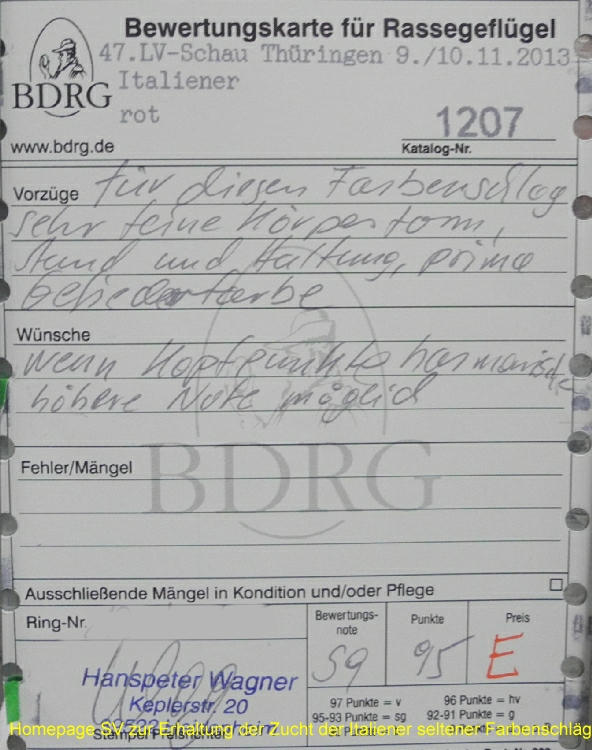 Bewertungskarte für Rassegeflügel
47.LV-Schau Thüringen 9./10.11.2013
Italiener
BDRG
rot
1207
www.bdrg.de
Katalog-Nr.
Vorzüge für diesen Farbenschlag
sehr feine Körperform,
Stand und Haltung, prima
Gefiederfarbe
Wünsche
wenn Kopfpunkte harmonisch
höhere Note möglich
BDRG
Fehler/Mängel
Ausschließende Mängel in Kondition und/oder Pflege
Ring-Nr.
Bewertungs-
note
Punkte
Preis
sg
95
E
Hanspeter Wagner
Keplerstr. 20
97 Punkte = v
96 Punkte = hv
95-93 Punkte = sg
92-91 Punkte = g
Homepage SV zur Erhaltung der Zucht der Italiener seltener Farbenschläg